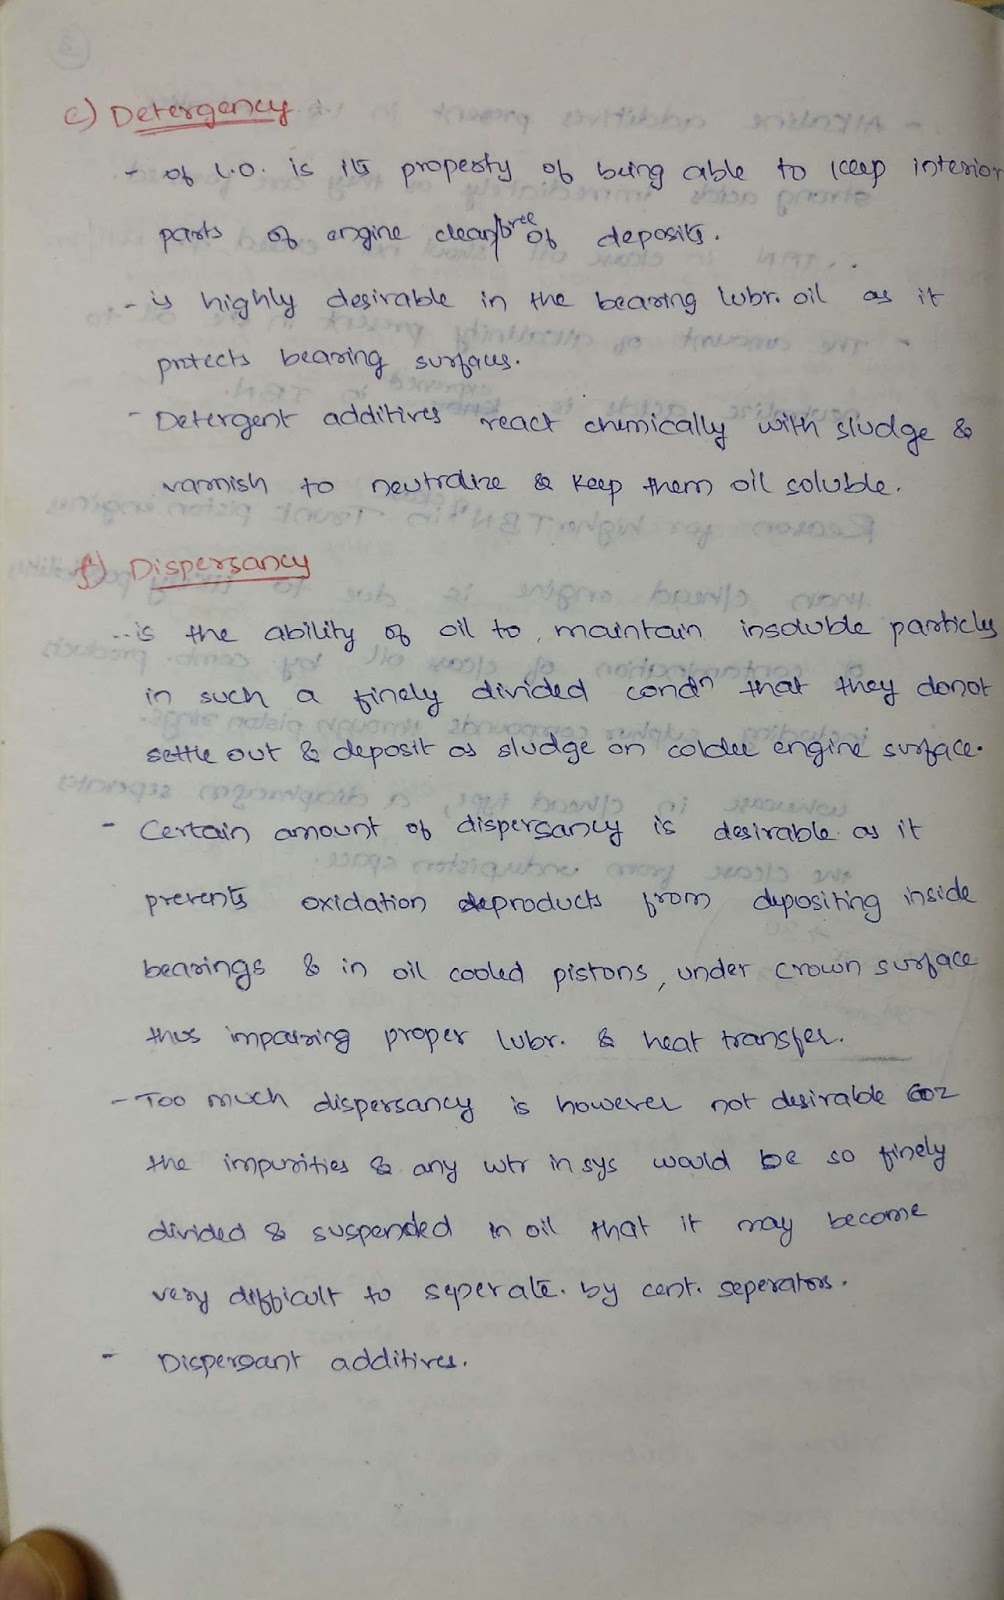 e) Detergency
- of L.O. is its property of being able to keep interior
parts of engine clean/free of deposits.
- is highly desirable in the bearing lubr. oil as it
protects bearing surfaces.
- Detergent additives react chemically with sludge &
varnish to neutralize & keep them oil soluble.
f) Dispersancy
- is the ability of oil to maintain insoluble particles
in such a finely divided condn that they donot
settle out & deposit as sludge on colder engine surface.
- Certain amount of dispersancy is desirable as it
prevents oxidation products from depositing inside
bearings & in oil cooled pistons, under crown surface
thus impairing proper lubr. & heat transfer.
- Too much dispersancy is however not desirable coz
the impurities & any wtr in sys would be so finely
divided & suspended in oil that it may become
very difficult to seperate. by cent. seperators.
- Dispersant additives.